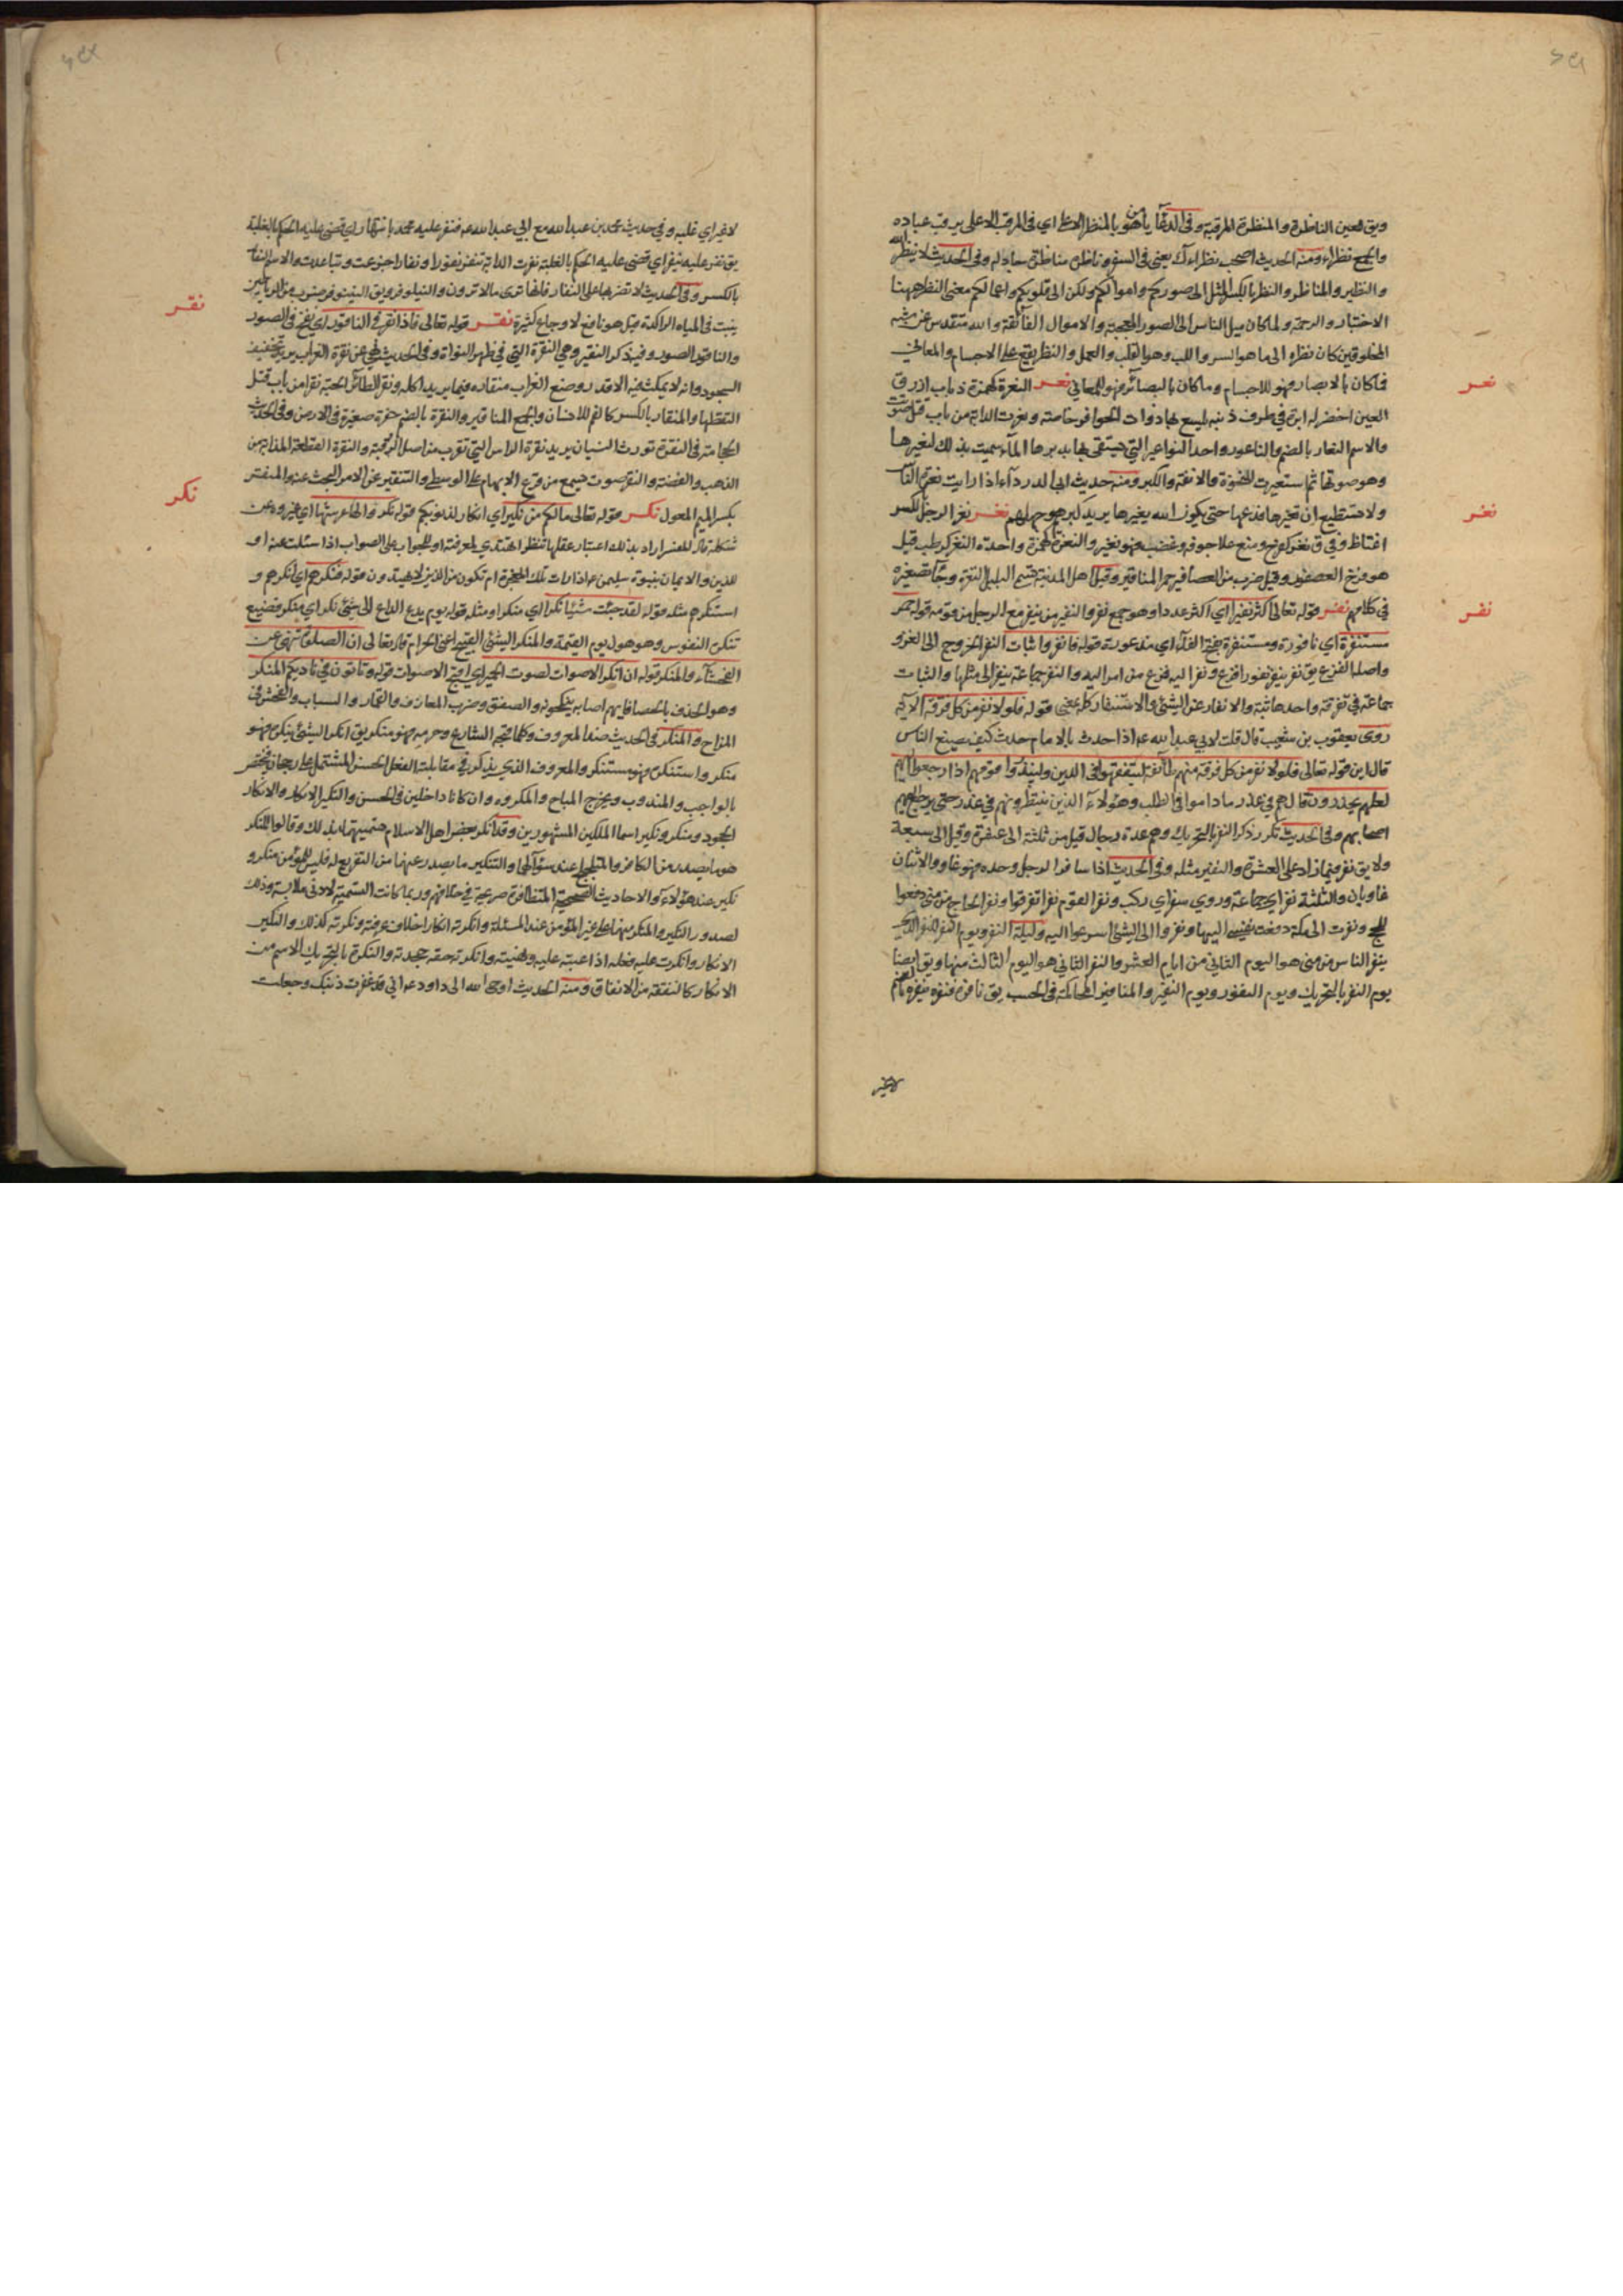 ويق للعين الناظرة والمنظرة المرقبة وفى الدعآ يا من هو بالمنظر الاعلى اي فى المرقب الاعلى يرقب عباده
والجمع نظراء ومنه الحديث اصحب نظراءك يعنى فى السفر وناظره مناظرة جادله وفى الحديث لا ينظر الله
والنظير والمناظر والنظر بالكسر المثل الى صوركم واموالكم ولكن الى قلوبكم واعمالكم معنى النظر ههنا
الاختيار والرحمة ولما كان ميل الناس الى الصور المعجبة والاموال الفآئقة والله متقدس عن شبه
المخلوقين كان نظره الى ما هو السر واللب وهو القلب والعمل والنظر يقع على الاجسام والمعانى
فما كان بالابصار فهو للاجسام وما كان بالبصآئر فهو للمعاني نعر النعرة كهمزة ذباب ازرق
العين اخضر له ابرة في طرف ذنبه يلسع بها ذوات الحوافر خاصة ونعرت الدابة من باب قتل صوتت
والاسم النعار بالضم والناعور واحد النواعير التي يستقى بها يديرها المآء سميت بذلك لنعيرها
وهو صوتها ثم استعيرت للنخوة والانفة والكبر ومنه حديث ابى الدردآء اذا رايت نعرة الناس
ولا تستطيع ان تغيرها فدعها حتى يكون الله يغيرها يريد كبرهم وجهلهم نغر نغر الرجل بالكسر
اغتاظ وفى ق نغر كفرح ومنع علا جوفه وغضب فهو نغير والنغرة كهمزة واحدة النغر كرطب قيل
هو فرخ العصفور وقيل ضرب من العصافير حمر المناقير وقيل اهل المدينة تسمي البلبل النغرة وجآ تصغيره
في كلامهم نفر قوله تعالى اكثر نفيرا اي اكثر عددا وهو جمع نفر والنفير من ينفر مع الرجل من قومه قوله حمر
مستنفرة اي نافورة ومستنفرة بفتح الفآء اي مذعورة قوله فانفروا ثبات النفر الخروج الى الغزو
واصله الفزع يق نفر ينفر نفورا فزع ونفر اليه فزع من امر اليه والنفر جماعة ينفر الى مثلها والثبات
جماعة في تفرقة واحدها ثبة والانفار عن الشئ والاستنفار كله بمعنى قوله فلولا نفر من كل فرقة الآية
روى يعقوب بن شعيب قال قلت لابي عبد الله ع اذا حدث بالامام حدث كيف يصنع الناس
قال اين قوله تعالى فلولا نفر من كل فرقة منهم طآئفة ليتفقهوا فى الدين ولينذروا قومهم اذا رجعوا اليهم
لعلهم يحذرون قال هم في عذر ما داموا فى الطلب وهؤلآء الذين ينتظرونهم في عذر حتى يرجع اليهم
اصحابهم وفى الحديث تكرر ذكر النفر بالتحريك وهم عدة رجال قيل من ثلثة الى عشرة وقيل الى سبعة
ولا يق نفر فيما زاد على العشرة والنفير مثله وفى الحديث اذا سافر الرجل وحده فهو غاو والاثنان
غاويان والثلثة نفر اي جماعة وروي سفر اي ركب ونفر القوم نفرا تفرقوا ونفر الحاج من منى دفعوا
للحج ونفرت الى مكة دفعت نفسى اليها ونفروا الى الشئ اسرعوا اليه وليلة النفر ويوم النفر لليوم الذي
ينفر الناس من منى هو اليوم الثانى من ايام العشر والنفر الثانى هو اليوم الثالث منها ويق ايضا
يوم النفر بالتحريك ويوم النفور ويوم النفير والمنافرة المحاكمة فى الحسب يق نافره فنفره ينفره بالضم
لاغير
نعر
نغر
نفر
لاغير اي غلبه وفي حديث محمد بن عبد الله مع ابي عبد الله ع فنفر عليه محمد بانتهار اي قضى عليه الحكم بالغلبة
يق نفر عليه ينفر اي قضى عليه الحكم بالغلبة نفرت الدابة تنفر نفورا ونفارا جزعت وتباعدت والاسم النفار
بالكسر وفى الحديث لا تضربها على النفار فانها ترى ما لا ترون والنيلوفر ويق النينوفر ضرب من الرياحين
ينبت فى المياه الراكدة قيل هو نافع لاوجاع كثيرة نقر قوله تعالى فاذا نقر في الناقور اي نفخ فى الصور
والناقور الصور وفيه ذكر النقير وهي النقرة التي في ظهر النواة وفى الحديث نهى عن نقرة الغراب يريد تخفيف
السجود وانه لا يمكث فيه الا قدر وضع الغراب منقاره فيما يريد اكله ونقر الطآئر الحبة نقرا من باب قتل
التقطها والمنقار بالكسر كالفم للانسان والجمع المناقير والنقرة بالضم حفرة صغيرة فى الارض وفى الحديث
الحجامة فى النقرة تورث النسيان يريد نقرة الراس التي تقرب من اصل الرقبة والنقرة القطعة المذابة من
الذهب والفضة والنقر صوت يسمع من قرع الابهام على الوسطى والتنقير عن الامر البحث عنه والمنقر
بكسر الميم المعول نكر قوله تعالى ما لكم من نكير اي انكار لذنوبكم قوله نكروا لها عرشها اي غيروه عن
شكله قال المفسر اراد بذلك اعتبار عقلها ننظر اتهتدي لمعرفته او للجواب على الصواب اذا سئلت عنه او
للدين والايمان بنبوة سليمن ع اذا رات تلك المعجزة ام تكون من الذين لا يهتدون قوله فنكرهم اي انكرهم و
استنكرهم مثله قوله لقد جئت شيئا نكرا اي منكرا ومثله قوله يوم يدع الداع الى شئ نكر اي منكر فضيع
تنكره النفوس وهو هول يوم القيمة والمنكر الشئ القبيح اعنى الحرام قال تعالى ان الصلوة تنهى عن
الفحشآء والمنكر قوله ان انكر الاصوات لصوت الحمير اي اقبح الاصوات قوله وتاتون في ناديكم المنكر
وهو الحذف بالحصا فايهم اصابه ينكحونه والصفق وضرب المعازف والقمار والسباب والفحش فى
المزاح والمنكر فى الحديث ضد المعروف وكلما قبحه الشارع وحرمه فهو منكر يق انكر الشئ ينكره فهو
منكر واستنكره فهو مستنكر والمعروف الذي يذكر في مقابلته الفعل الحسن المشتمل على رجحان فيختص
بالواجب والمندوب ويخرج المباح والمكروه وان كانا داخلين فى الحسن والنكير الانكار والانكار
الجحود ومنكر ونكير اسما الملكين المشهورين وقد انكر بعض اهل الاسلام تسميتهما بذلك وقالوا المنكر
هو ما يصدر من الكافر والتلجلج عند سؤالهما والتنكير ما يصدر عنهما من التقريع له فليس للمؤمن منكر و
نكير عند هؤلآء والاحاديث الصحيحة المتظافرة صريحة في خلافهم وربما كانت التسمية لادنى ملابسة وذلك
لصدور النكير والمنكر منهما على غير المؤمن عند المسئلة وانكرته انكارا خلاف عرفته ونكرته كذلك والنكير
الانكار وانكرت عليه فعله اذا عبته عليه ونهيته وانكرته حقه جحدته والنكرة بالتحريك الاسم من
الانكار كالنفقة من الانفاق ومنه الحديث اوحى الله الى داود ع انى قد غفرت ذنبك وجعلت
نقر
نكر